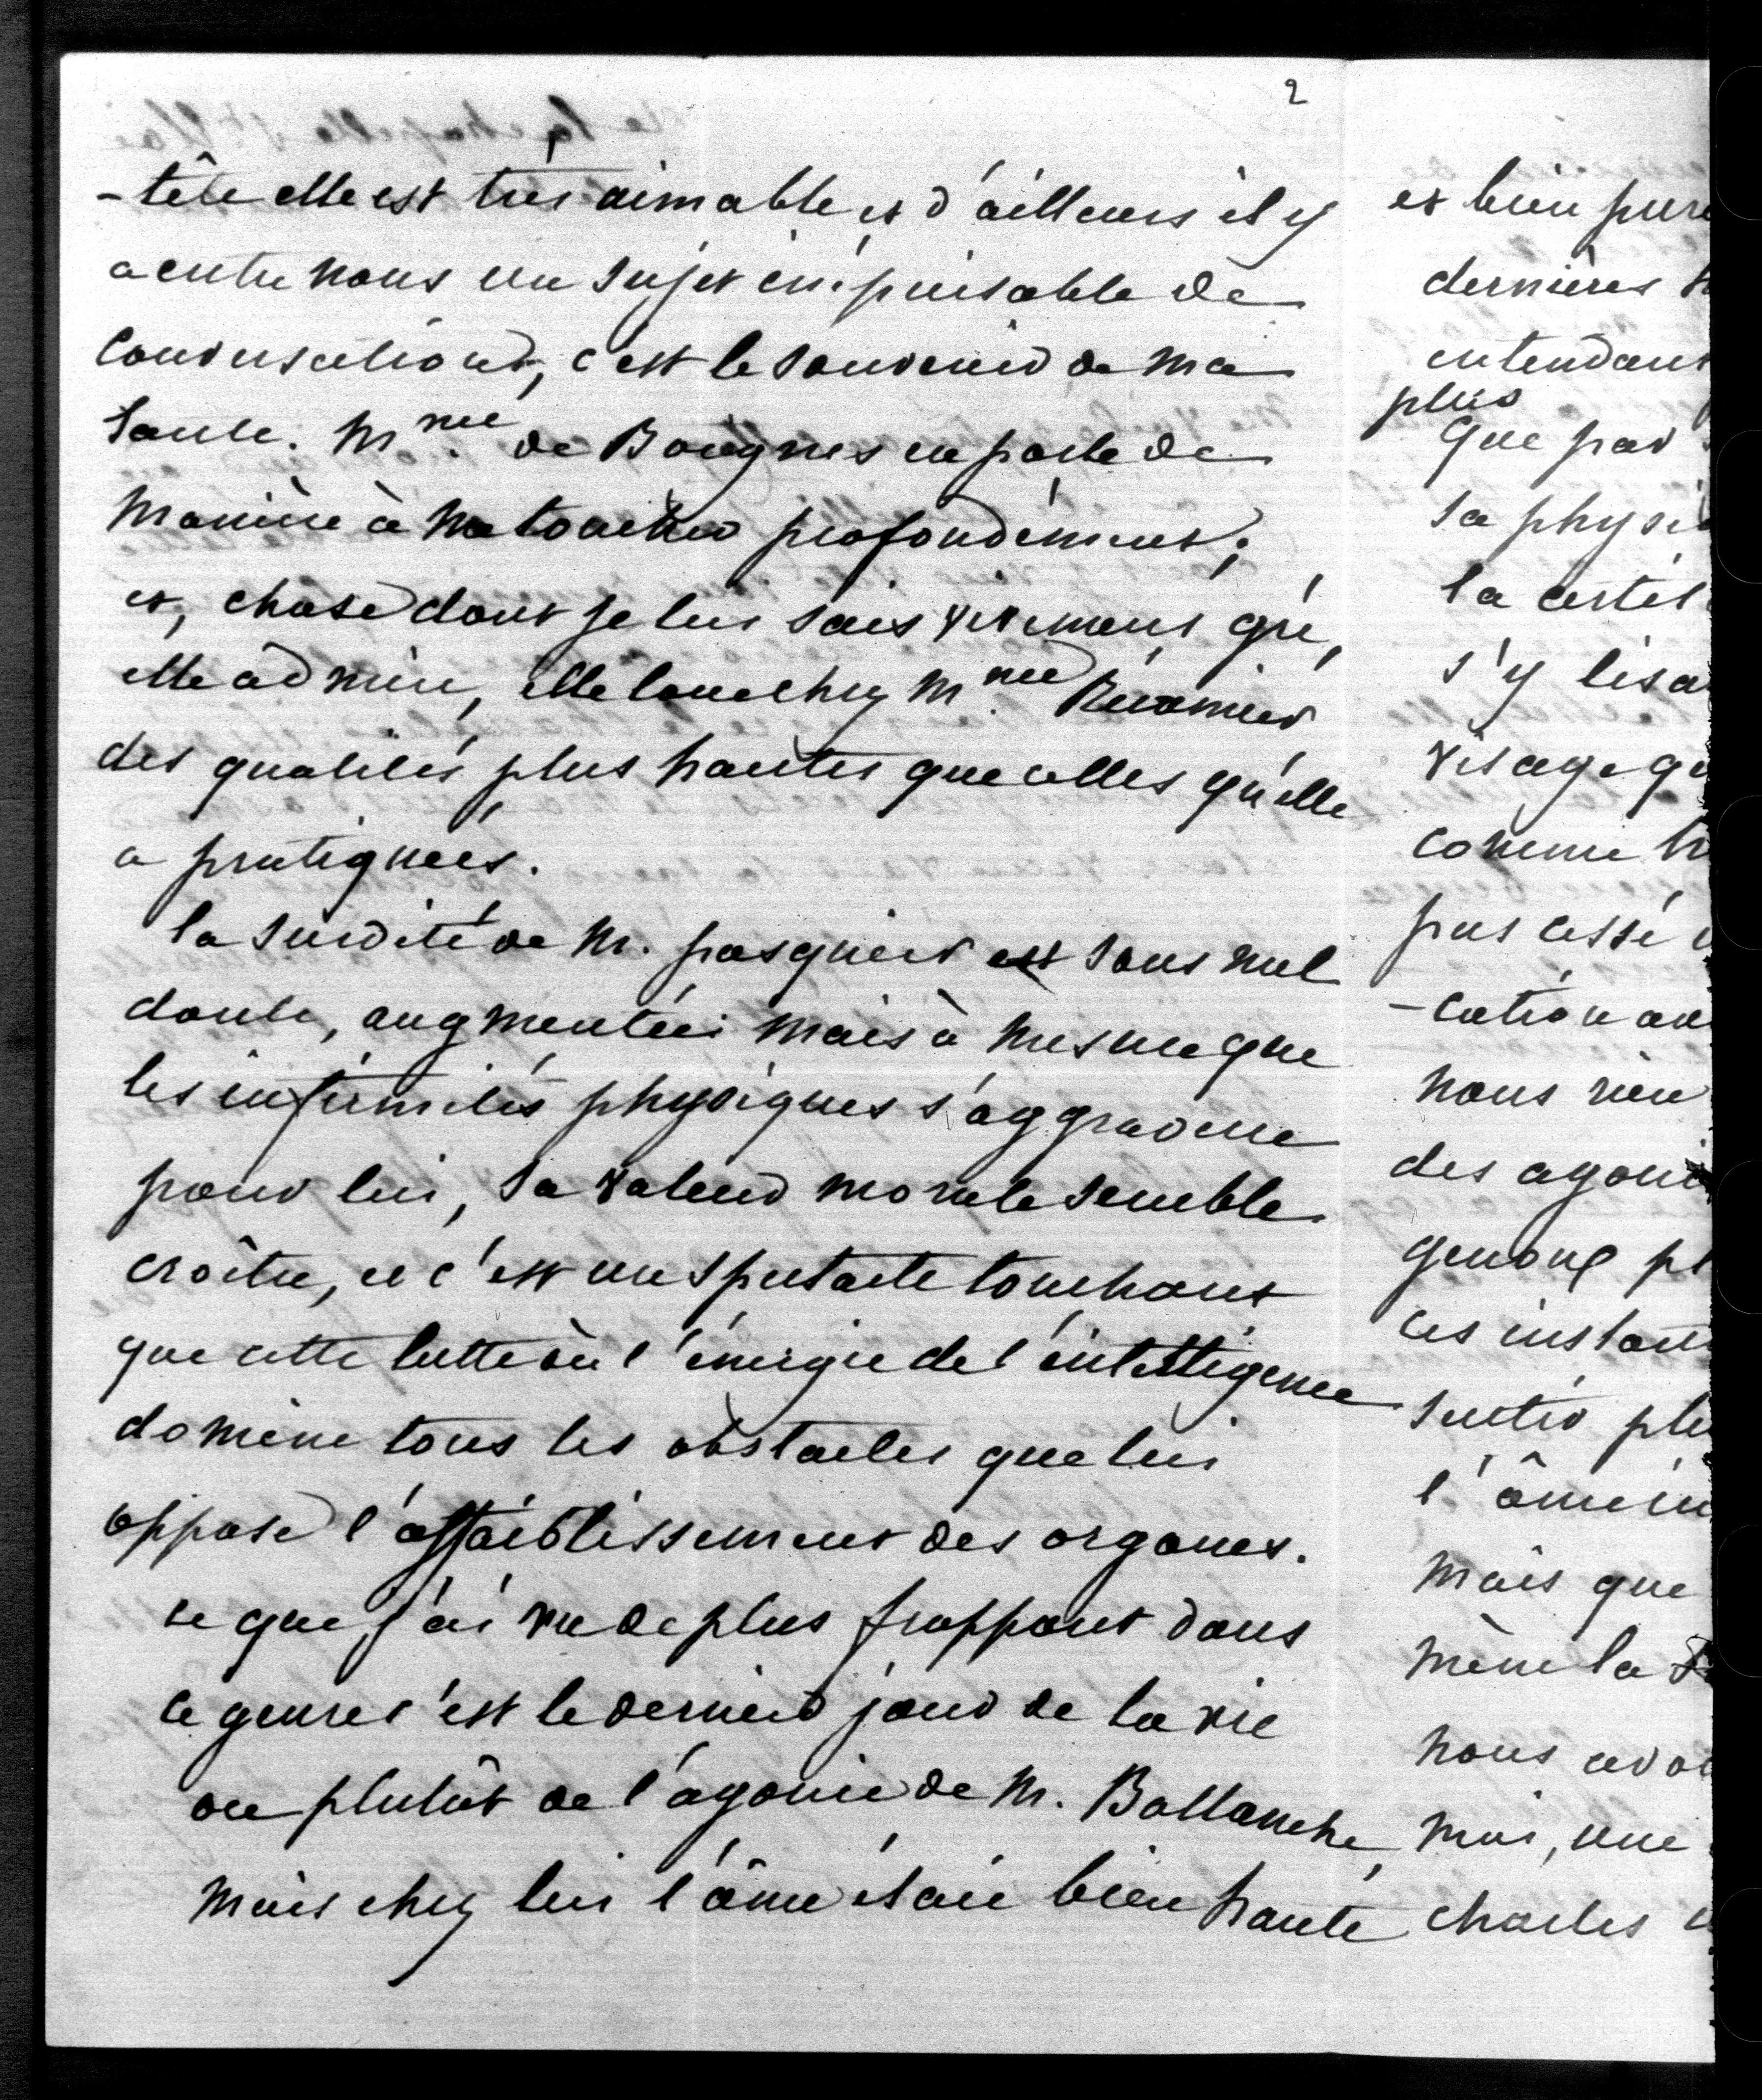 2
-tête elle est très aimable et d'ailleurs il y
a entre nous un sujet inépuisable de
conversations, c'est le souvenir de ma
tante. Mme de Boignes en parle de
manière à me toucher profondément;
et, chose dont je lui sais vivement gré,
elle admire, elle loue chez Mme Récamier
des qualités plus hautes que celles qu'elle
a pratiquées.
la surdité de M. pasquier est sans nul
doute, augmentée mais à mesure que
les infirmités physiques s'aggravent
pour lui, sa valeur morale semble
croître, et c'est un spectacle touchant
que cette lutte où l'énergie de l'intelligence
domine tous les obstacles que lui
oppose l'affaiblissement des organes.
ce que j'ai vu de plus frappant dans
ce genre c'est le dernier jour de la vie
ou plutôt de l'agonie de M. Ballanche,
mais chez lui l'âme était bien haute
et bien pure
dernières
entendant
plus
que par
sa physi
la certit
s'y lisa
visage qu
comme
pas cessé
-cation
nous rien
des agoni
genoux pr
ces instant
sentir plu
l'âme im
mais que
même la
nous avo
moi, une
charles